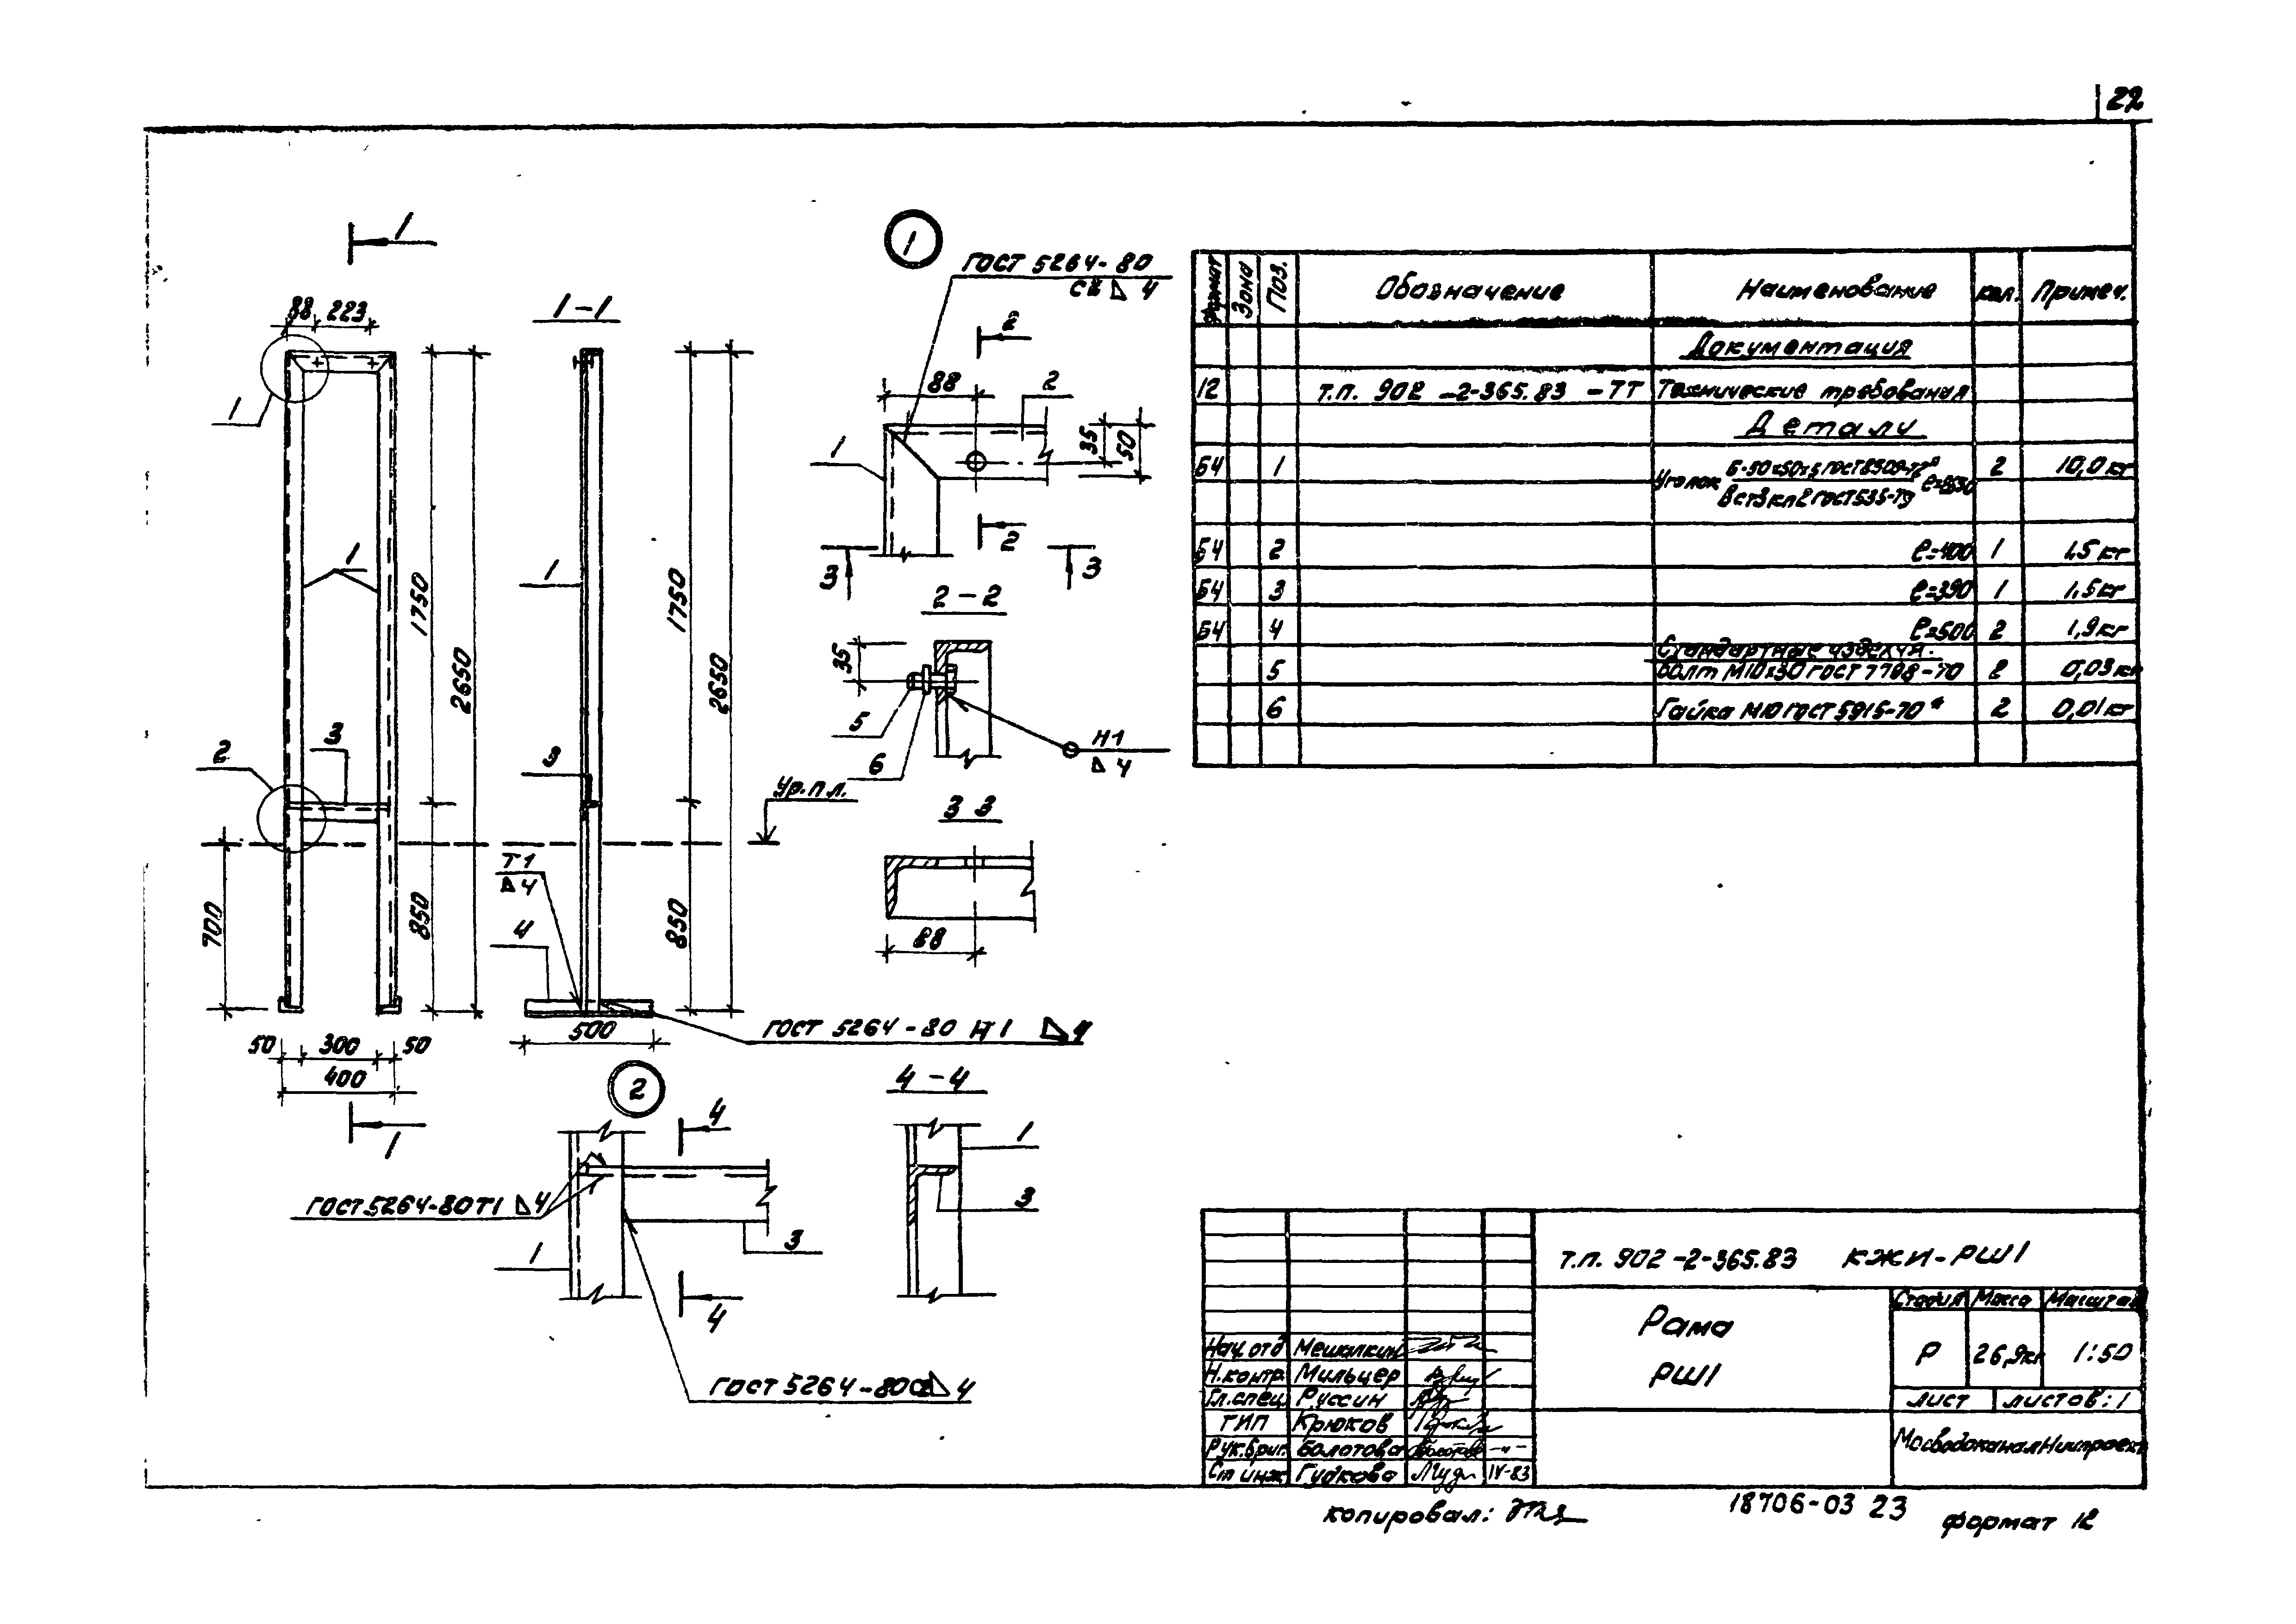 22
1
88 223
1-1
1
1
1750
2650
3
2
700
850
50 300 50
400
1
1
1750
2650
3
850
Т1
4
4
500
ГОСТ 5264-80 Н1 4
Ур.пл.
1
ГОСТ 5264-80
4
2
88
2
35
50
1
2
3
3
2-2
35
5
6
Н1
4
3 3
88
2
4
ГОСТ 5264-80Т1 4
1
3
4
ГОСТ 5264-80 4
4-4
1
3
Формат Зона Поз. Обозначение Наименование кол. Примеч.
Документация
12 т.п. 902-2-365.83 -ТТ Технические требования
Детали
Б4 1 Уголок Б-50х50х5 ГОСТ 8509-72* 2 10,0 кг
ВСт3кп2 ГОСТ 535-79
Б4 2 ℓ=400 1 1,5 кг
Б4 3 ℓ=390 1 1,5 кг
Б4 4 ℓ=500 2 1,9 кг
Стандартные изделия:
5 Болт М10х30 ГОСТ 7798-70 2 0,03 кг
6 Гайка М10 ГОСТ 5915-70* 2 0,01 кг
т.п. 902-2-365.83 КЖИ-РШ1
Рама
РШ1
Стадия Масса Масштаб
Р 26,9кг 1:50
лист листов: 1
МосводоканалНиипроект
Нач.отд Мешалкин
Н.контр. Мильцер
Гл.спец. Руссин
ГИП Крюков
Рук.бриг. Болотова
Ст инж Гудкова IV-83
копировал:
18706-03 23
формат 12